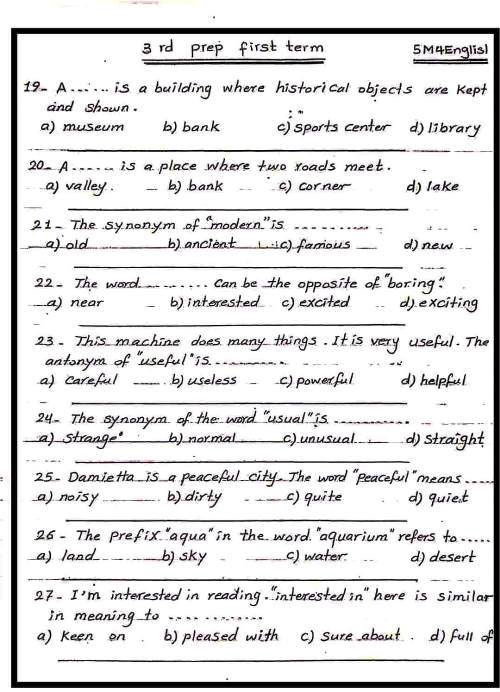 3 rd prep first term
5M4Englisl
19- A ...... is a building where historical objects are kept
and shown.
a) museum b) bank c) sports center d) library
20- A ...... is a place where two roads meet.
a) valley. b) bank c) corner d) lake
21- The synonym of "modern" is ............
a) old b) ancient c) famous d) new
22- The word ......... can be the opposite of "boring".
a) near b) interested c) excited d) exciting
23- This machine does many things. It is very useful. The
antonym of "useful" is ............
a) careful b) useless c) powerful d) helpful
24- The synonym of the word "usual" is ............
a) strange b) normal c) unusual d) straight
25- Damietta is a peaceful city. The word "peaceful" means .....
a) noisy b) dirty c) quite d) quiet
26- The prefix "aqua" in the word "aquarium" refers to .....
a) land b) sky c) water d) desert
27- I'm interested in reading. "interested in" here is similar
in meaning to ............
a) keen on b) pleased with c) sure about d) full of